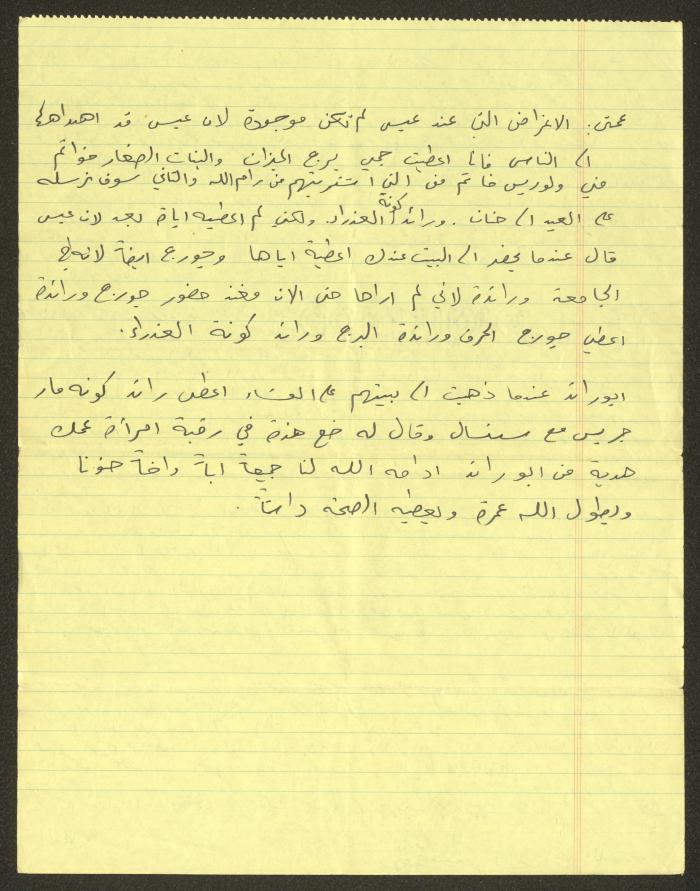 عمتي: الاغراض التي عند عيسى لم تكن موجودة لان عيسى قد اهداها
الى الناس فأنا اعطيت جمي برج الميزان والبنات الصغار خواتم
مني ولوريس خاتم من التي اشتريتهم من رام الله والثاني سوف نرسله
على العيد الى حنان. ورائد كونة العذراء. ولكني لم اعطيه اياة بعد لان عيسى
قال عندما يحضر الى البيت عندك اعطية اياها وجورج ايضاً لانه في
الجامعة ورائدة لاني لم اراها حتى الان فعند حضور جورج ورائدة
اعطي جورج الحرف ورائدة البرج ورائد كونة العذراء.
ابو رائد عندما ذهبت الى بيتهم على العشاء اعطى رائد كونه مار
جريس مع سنسال وقال له ضع هذة في رقبة امرأة عمك
هدية من ابو رائد ادامه الله لنا جميعاً اباً واخاً حنونا
ويطول الله عمرة ويعطيه الصحة دائماً.